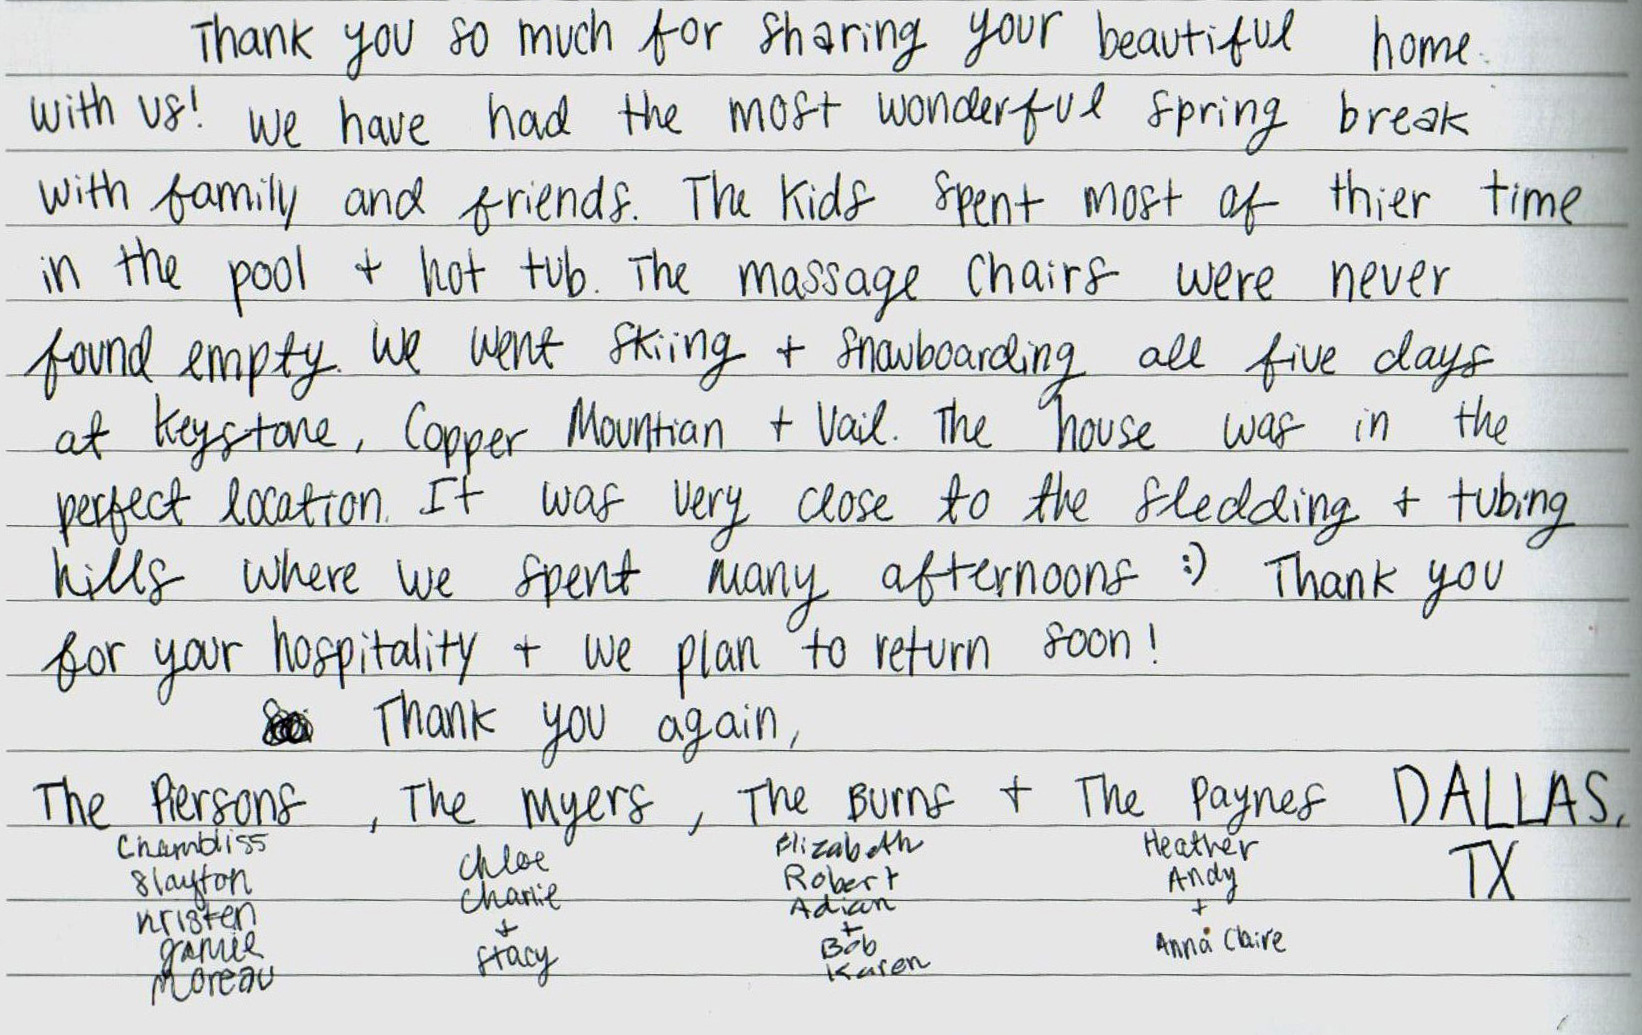 Thank you so much for sharing your beautiful home
with us! We have had the most wonderful spring break
with family and friends. The kids spent most of thier time
in the pool + hot tub. The massage chairs were never
found empty. We went skiing + snowboarding all five days
at Keystone, Copper Mountian + Vail. The house was in the
perfect location. It was very close to the sledding + tubing
hills where we spent many afternoons :) Thank you
for your hospitality + we plan to return soon!
Thank you again,
The Piersons, The Myers, The Burns + The Paynes DALLAS,
TX
Chambliss
Slayton
Kristen
Jamie
Moreau
Chloe
Charlie
+
Stacy
Elizabeth
Robert
Adian
+
Bob
Karen
Heather
Andy
+
Anna Claire